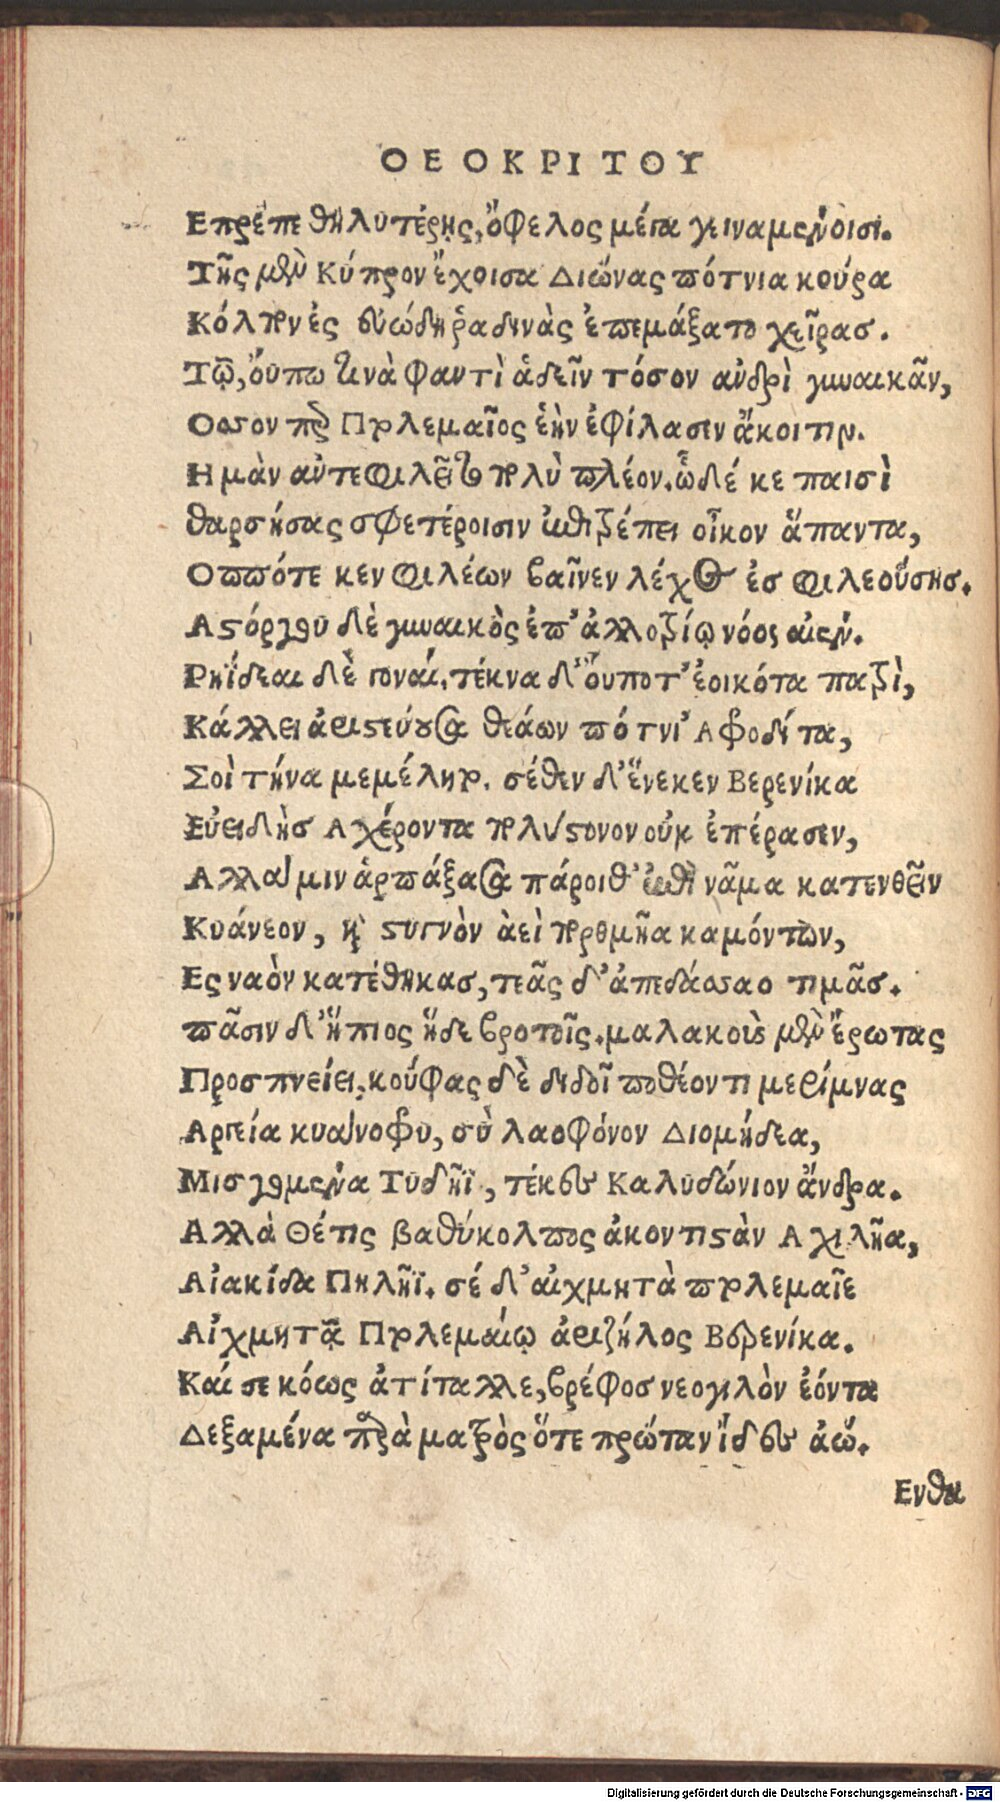 ΘΕΟΚΡΙΤΟΥ
Επρεπε θηλυτέρῃς, ὄφελος μέγα γειναμένοισι.
Τῆς μὲν Κύπρον ἔχοισα Διώνας πότνια κούρα
Κόλπον ἐς εὐώδη ῥαδινὰς ἐπεμάξατο χεῖρας.
Τῷ, οὔπω τινὰ φαντὶ ἁδεῖν τόσον ἀνδρὶ γυναικᾶν,
Οσσον περ Πτολεμαῖος ἑὴν ἐφίλασεν ἄκοιτιν.
Η μὰν αὐτεφιλεῖτο πολὺ πλέον. ὧδέ κε παισὶ
θαρσήσας σφετέροισιν ἐπιτρέπει οἶκον ἅπαντα,
Οππότε κεν φιλέων βαῖνεν λέχος ἐς φιλεούσης.
Αστόργου δὲ γυναικὸς ἐπ' ἀλλοτρίῳ νόος αἰεν.
Ρηΐδεαι δὲ γοναί, τέκνα δ' οὔποτ' ἐοικότα πατρὶ,
Κάλλει ἀριστεύουσα θεάων πότνι' Αφροδίτα,
Σοὶ τήνα μεμέλητο. σέθεν δ' ἕνεκεν Βερενίκα
Εὐειδὴς Αχέροντα πολύστονον οὐκ ἐπέρασεν,
Αλλά μιν ἁρπάξασα πάροιθ' ἐπὶ νᾶμα κατενθεῖν
Κυάνεον, καὶ στυγνὸν ἀεὶ πορθμῆα καμόντων,
Ες ναὸν κατέθηκας, τεᾶς δ' ἀπεδάσσαο τιμᾶς.
πᾶσιν δ' ἤπιος ἥδε βροτοῖς. μαλακοὺς μὲν ἔρωτας
Προσπνείει, κούφας δὲ διδοῖ ποθέοντι μερίμνας
Αργεία κυάνοφρυ, σὺ λαοφόνον Διομήδεα,
Μισγομένα Τυδῆϊ, τέκες Καλυδώνιον ἄνδρα.
Αλλὰ Θέτις βαθύκολπος ἀκοντιστὰν Αχιλῆα,
Αἰακίδα Πηλῆϊ. σέ δ' αἰχμητὰ πτολεμαῖε
Αἰχμητᾷ Πτολεμαίῳ ἀριζήλος Βερενίκα.
Καί σε κόως ἀτίταλλε, βρέφος νεογιλὸν ἐόντα
Δεξαμένα παρὰ ματρὸς ὅτε πρώταν ἴδες ἀώ.
Ενθα
Digitalisierung gefördert durch die Deutsche Forschungsgemeinschaft - DFG